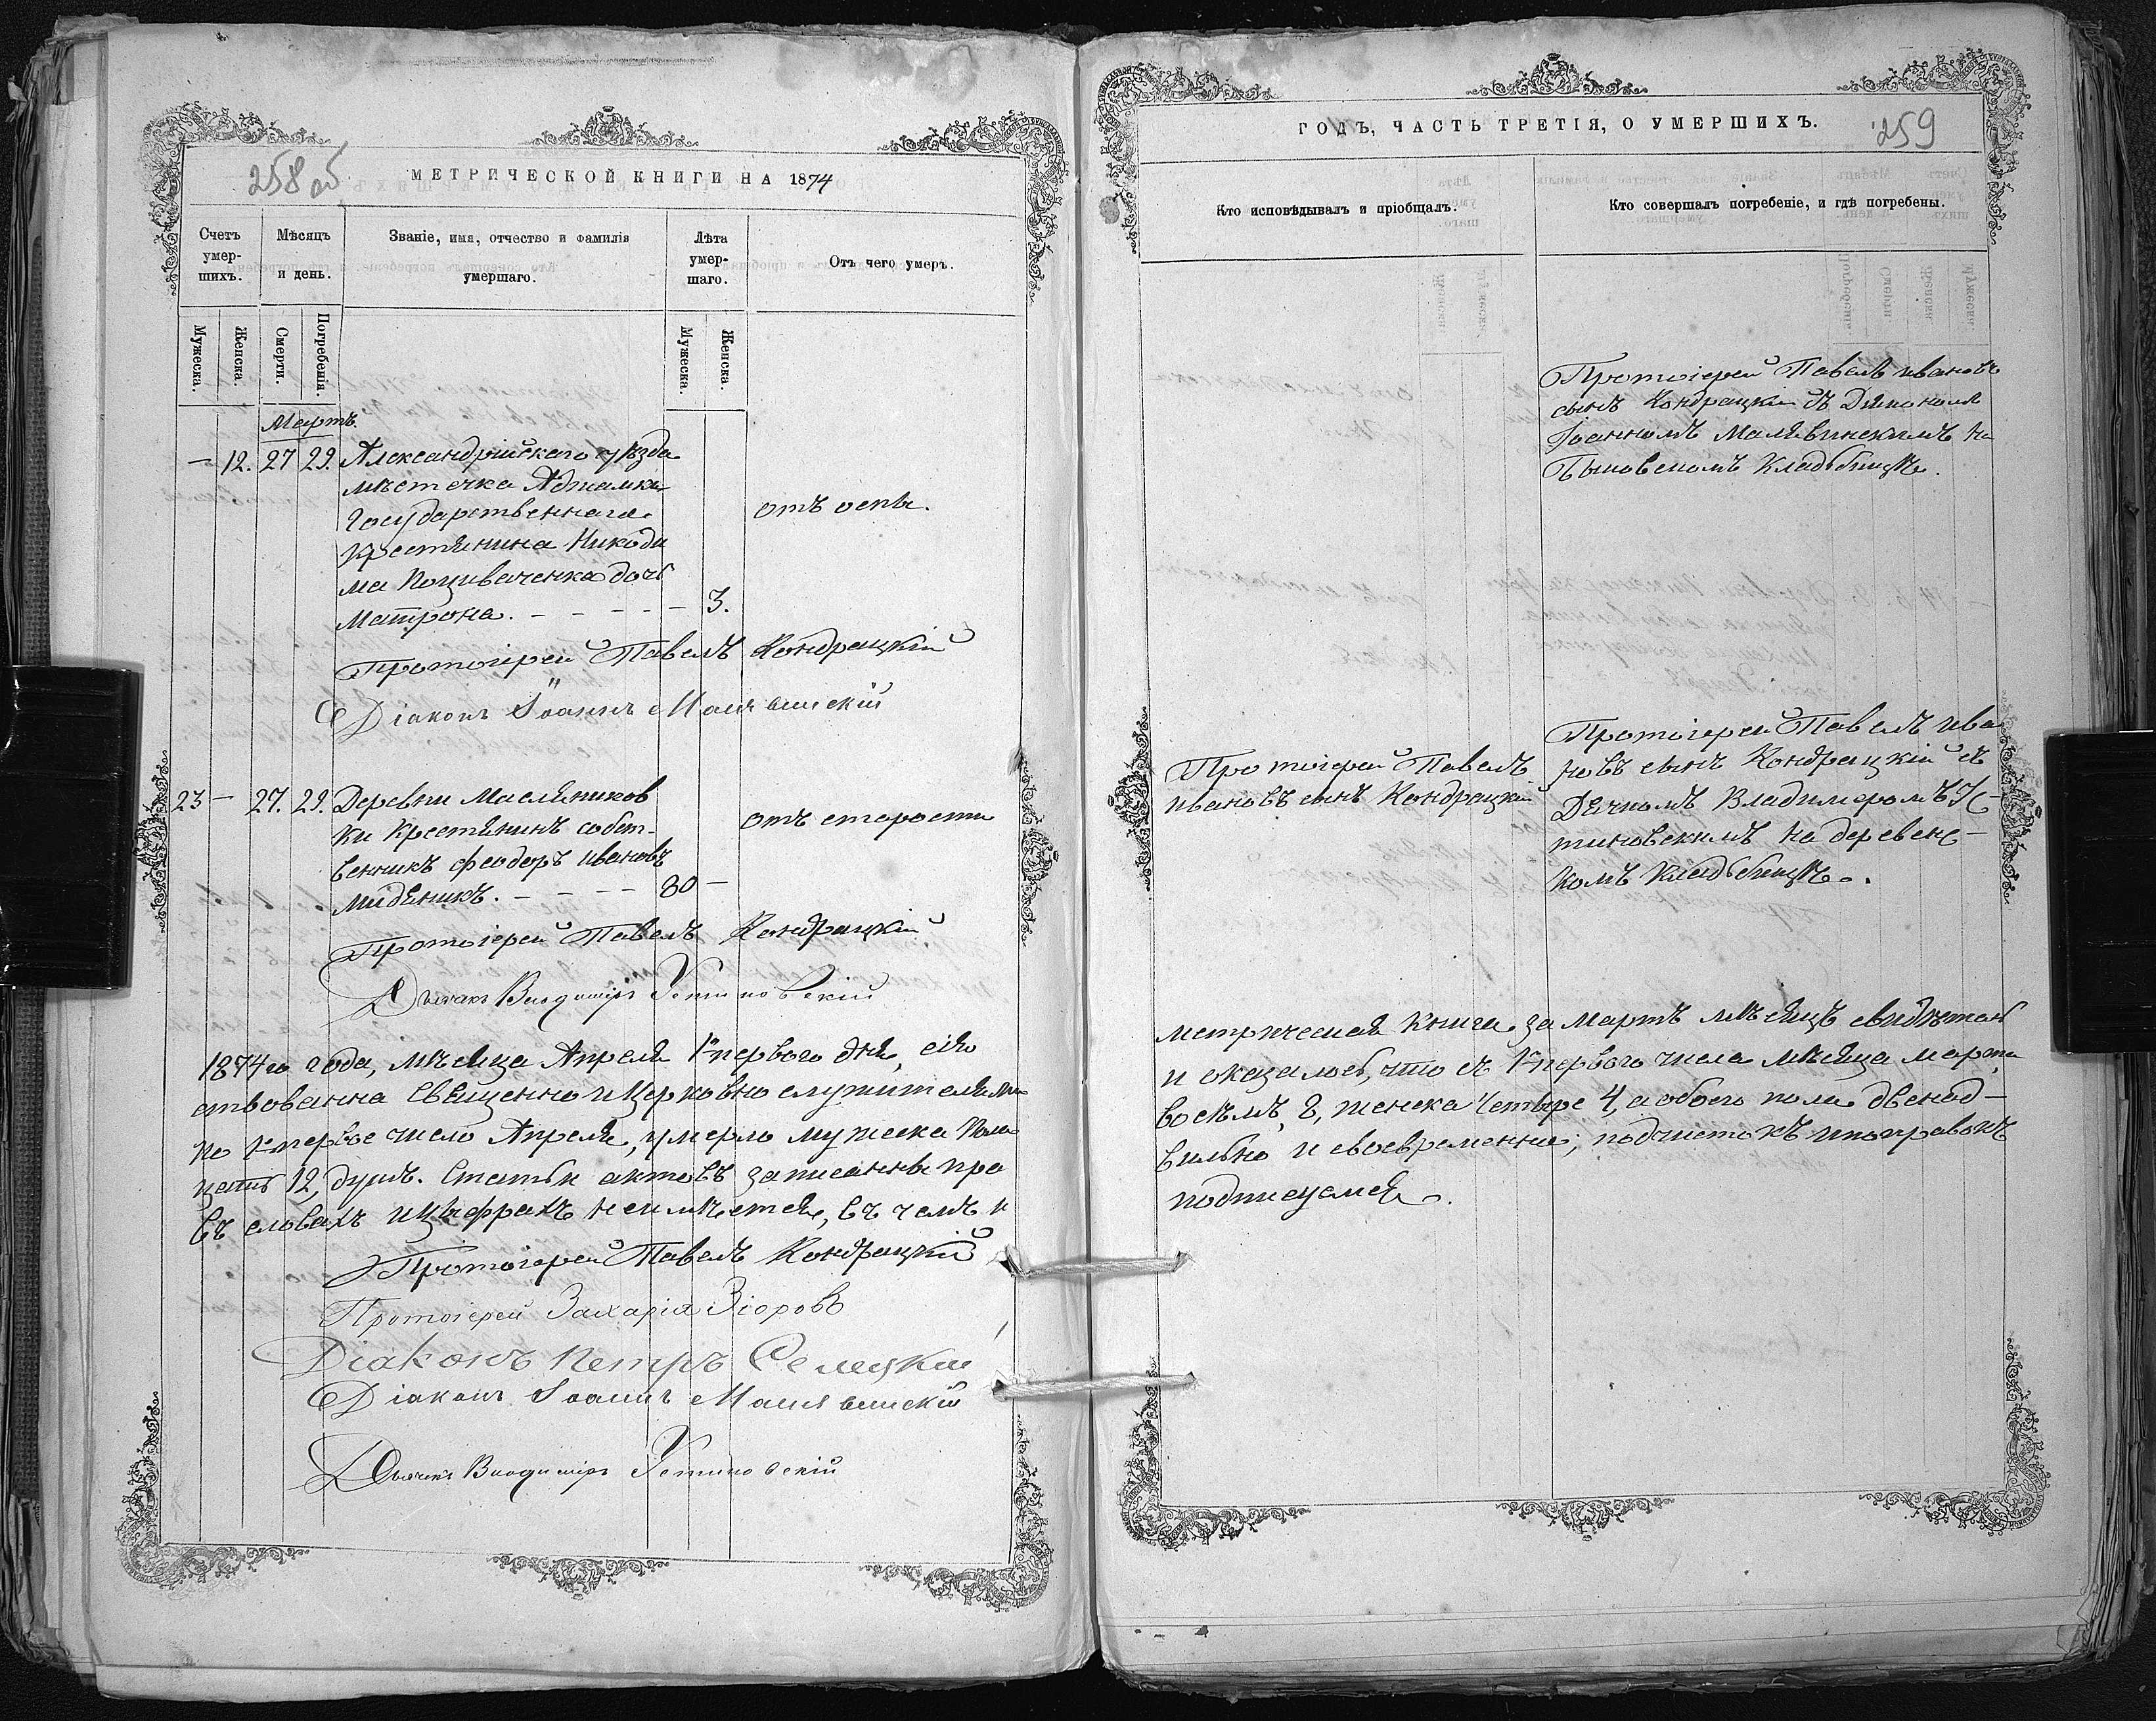 258 об
МЕТРИЧЕСКОЙ КНИГИ НА 1874
Счетъ умер-шихъ.
Мѣсяцъ и день.
Званіе, имя, отчество и фамилія умершаго.
Лѣта умер-шаго.
Отъ чего умеръ.
Мужеска.
Женска.
Смерти.
Погребенія.
Мужеска.
Женска.
Мартъ.
— 12. 27 29. Александрійскаго уѣзда
мѣстечка Аджамки
Государственнаго
отъ оспы.
Крестянина Никоди
ма дочь
Матрона. - - - - - 3.
Протоіерей Павелъ Кондрацкій
Діаконъ Іоаннъ Малявинскій
23 — 27. 29. Деревни Масляников
ки крестянинъ собст-
отъ старости
венникъ Феодоръ Ивановъ
Мидяникъ. - - - - 80 —
Протоіерей Павелъ Кондрацкій
Дьячекъ Владиміръ Устиновскій
1874го года, мѣсяца Апреля 1 первого дня, сія
ствованна Священно и Церковно служителями
по 1 первое число Апреля, умерло мужеска пола
цать 12, душъ. Статьи актовъ записанны пра
въ словахъ и цыфрахъ неимѣется, въ чемъ и
Протоіерей Павелъ Кондрацкій
Протоіерей Захарія Зіоровъ
Діаконъ Петръ Селецкій
Діаконъ Іоаннъ Малявинскій
Дьячекъ Владиміръ Устиновскій
ГОДЪ, ЧАСТЬ ТРЕТІЯ, О УМЕРШИХЪ.
259
Кто исповѣдывалъ и пріобщалъ.
Кто совершалъ погребеніе, и гдѣ погребены.
Протоіерей Павелъ Ивановъ
сынъ Кондрацкій съ Диякономъ
Іоанномъ Малявинскимъ на
кладбищѣ.
Протоіерей Павелъ
Ивановъ сынъ Кондрацкій
Протоіерей Павелъ Ива
новъ сынъ Кондрацкій съ
Дячкомъ Владимеромъ Ус-
тиновскимъ на деревенс-
комъ кладьбищѣ.
метрическая книга за Мартъ мѣсяцъ свидѣтель
и оказалось, что съ 1 первого числа мѣсяца марта
восѣмъ, 8, женска четыре 4, а обоего пола двенад-
вильно и своевременно; подчистокъ и поправокъ
подписуемся.